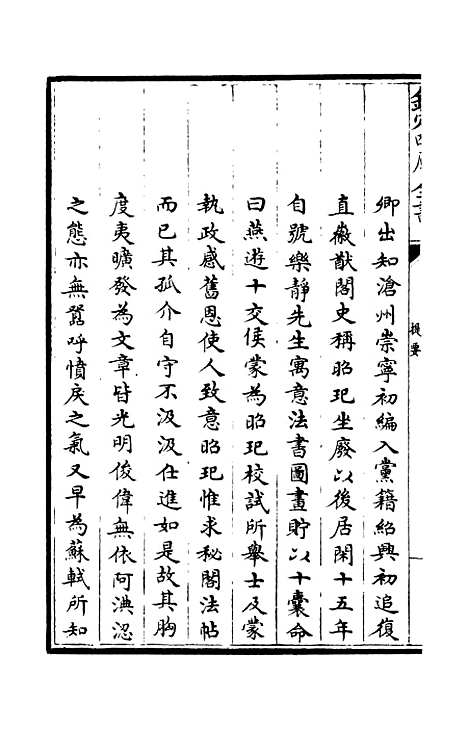 欽定四庫全書
提要
卿出知滄州崇寧初編入黨籍紹興初追復
直徽猷閣史稱昭玘坐廢以後居閑十五年
自號樂靜先生寓意法書圖畫貯以十囊命
曰燕遊十交侯蒙為昭玘校試所舉士及蒙
執政感舊恩使人致意昭玘惟求秘閣法帖
而已其孤介自守不汲汲仕進如是故其胸
度夷曠發為文章皆光明俊偉無依阿淟涊
之態亦無囂呼憤戾之氣又早為蘇軾所知